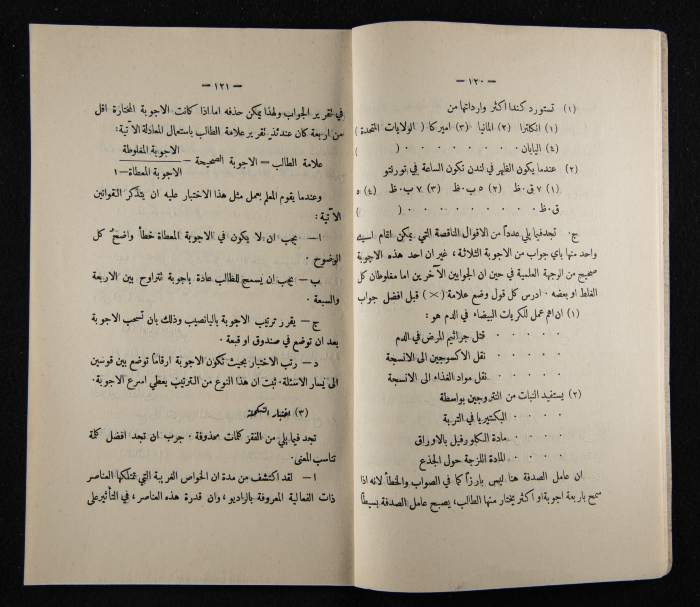 — ١٢٠ —
(١) تستورد كندا اكثر وارداتها من
(١) انكلترا (٢) المانيا (٣) اميركا ( الولايات التحدة )
(٤) اليابان . . . . . . . . ( )
(٢) عندما يكون الظهر في لندن تكون الساعة في تورنتو
(١) ٧ ق.ظ (٢) ٥ ب.ظ (٣) ٧ ب.ظ (٤) ٥
ق.ظ . . . . . . . . . ( )
ج. تجد فيما يلي عدداً من الاقوال الناقصة التي يمكن اتمام اسيـ
واحد منها باي جواب من الاجوبة الثلاثة، غير ان احد هذه الاجوبة
صحيح من الوجهة العلمية في حين ان الجوابين الآخرين اما مغلوطان كل
الغلط او بعضه . ادرس كل قول وضع علامة (×) قبل افضل جواب
(١) ان اهم عمل للكريات البيضاء في الدم هو :
. . . . . قتل جراثيم المرض في الدم
. . . . . نقل الاكسوجين الى الانسجة
. . . . . نقل مواد الغذاء الى الانسجة
(٢) يستفيد النبات من النتروجين بواسطة
. . . . . البكتيريا في التربة
. . . . . مادة الكلوروفيل بالاوراق
. . . . . المادة اللزجة حول الجذع
ان عامل الصدفة هنا ليس بارزاً كما في الصواب والخطأ لانه اذا
سمح باربعة اجوبة او اكثر يختار منها الطالب، يصبح عامل الصدفة بسيطاً
— ١٢١ —
في تقرير الجواب ولهذا يمكن حذفه اما اذا كانت الاجوبة المختارة اقل
من اربعة كان عندئذٍ تقرير علامة الطالب باستعمال المعادلة الآتية:
علامة الطالب = الاجوبة الصحيحة – الاجوبة المغلوطة
الاجوبة المعطاة – ١
وعندما يقوم المعلم بعمل مثل هذا الاختبار عليه ان يتذكر القوانين
الآتية :
ا — يجب ان لا يكون في الاجوبة المعطاة خطأ واضحٌ كل
الوضوح .
ب — يجب ان يسمح للطالب عادة باجوبة تتراوح بين الاربعة
والسبعة .
ج — يقرر ترتيب الاجوبة باليانصيب وذلك بان تسحب الاجوبة
بعد ان توضع في صندوق او قبعة .
د — رتب الاختبار بحيث تكون الاجوبة ارقاماً توضع بين قوسين
الى يسار الاسئلة. ثبت ان هذا النوع من الترتيب يعطي اسرع الاجوبة.
(٣) اختبار التكملة
تجد فيما يلي من الفقر كلمات محذوفة . جرب ان تجد افضل كلمة
تناسب المعنى.
١ — لقد اكتشف من مدة ان الخواص الغريبة التي تمتلكها العناصر
ذات الفعالية المعروفة بالراديو، وان قدرة هذه العناصر، في التأثير على